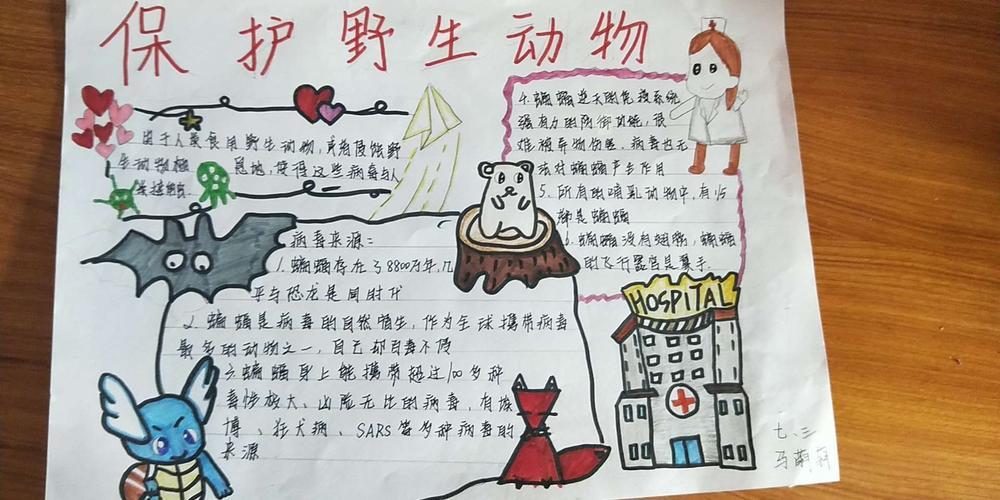 保护野生动物
由于人类食用野生动物,或者侵蚀野
生动物栖息地,使得这些病毒与人
类接触.
病毒来源:
1.蝙蝠存在了8800万年,几
乎与恐龙是同时代
2.蝙蝠是病毒的自然宿主,作为全球携带病毒
最多的动物之一,自己却百毒不侵
3.蝙蝠身上能携带超过100多种
毒性极大、凶险无比的病毒,有埃
博、狂犬病、SARS等多种病毒的
来源
4.蝙蝠逆天的免疫系统
强有力的防御功能,很
难被异物伤害。病毒也无
法对蝙蝠产生作用
5.所有的哺乳动物中,有1/5
都是蝙蝠
6.蝙蝠没有翅膀,蝙蝠
的飞行器官是翼手.
HOSPITAL
七、三
马萌